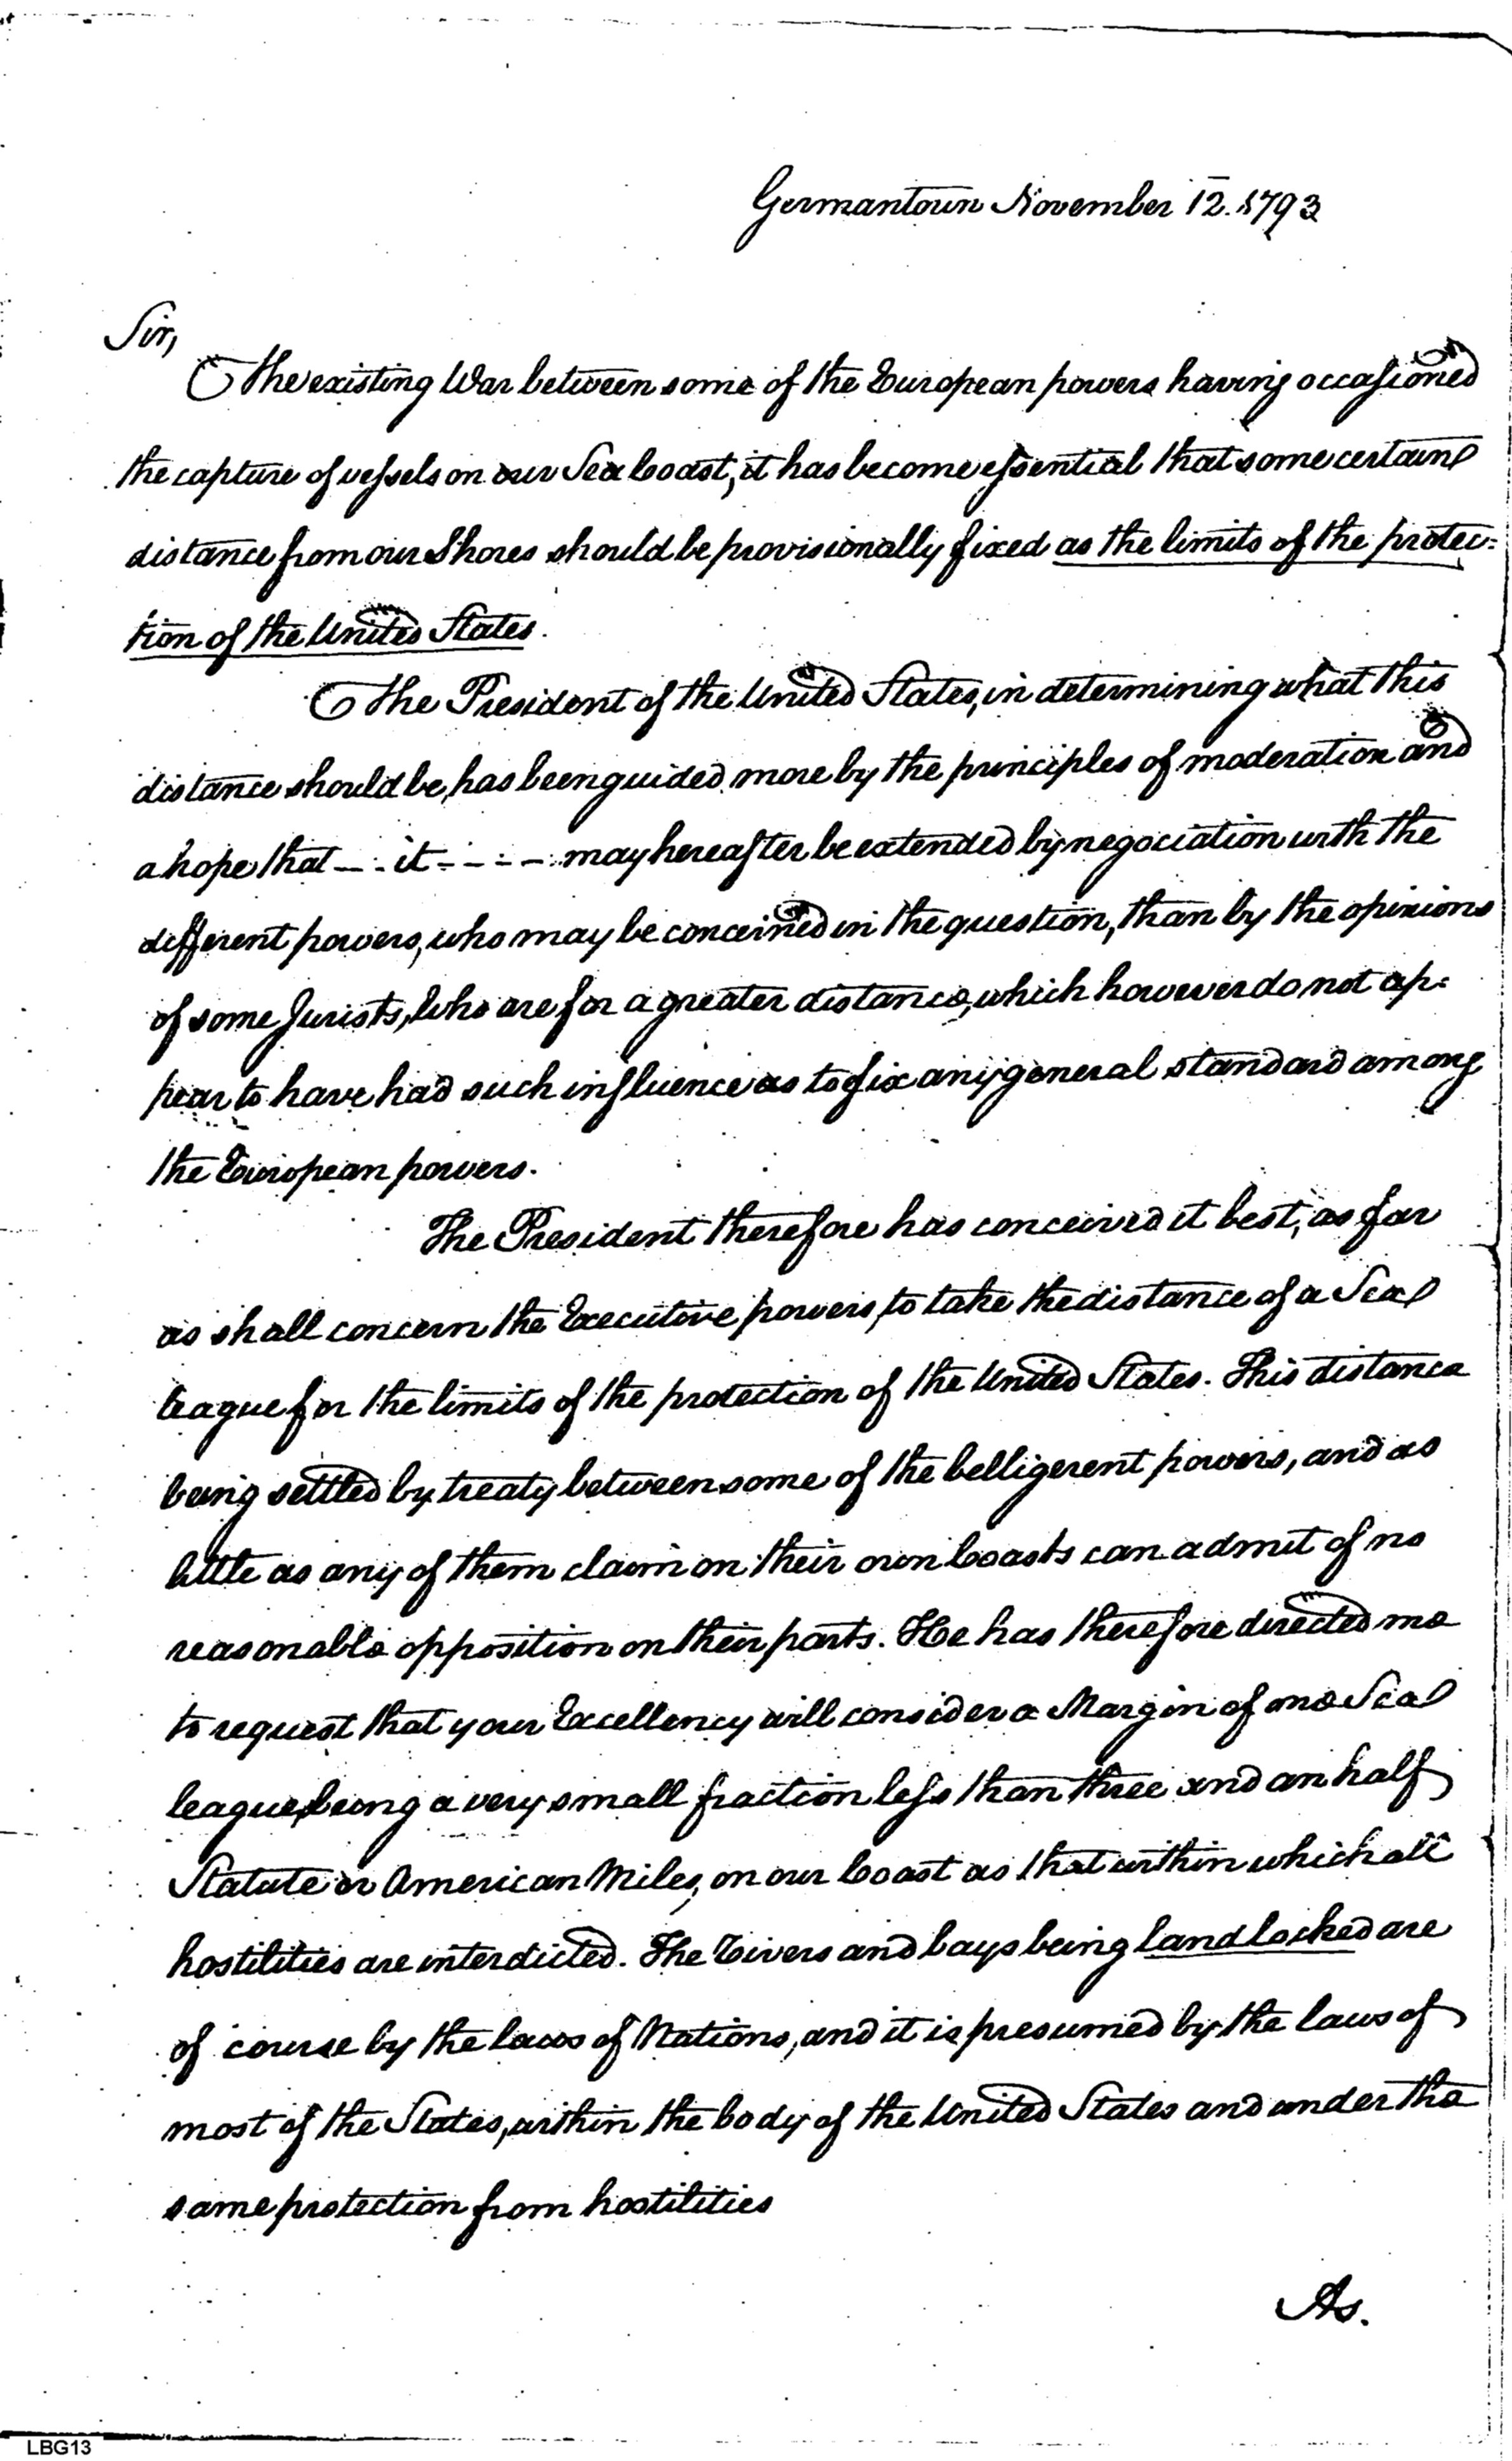 Germantown November 12. 1793
Sir,
The existing War between some of the European powers having occasioned
the capture of vessels on our Sea Coast, it has become essential that some certain
distance from our Shores should be provisionally fixed as the limits of the protec=
tion of the United States.
The President of the United States, in determining what this
distance should be, has been guided more by the principles of moderation and
a hope that - - it - - - - may hereafter be extended by negociation with the
different powers, who may be concerned in the question, than by the opinions
of some Jurists, who are for a greater distance, which however do not ap=
pear to have had such influence as to fix any general standard among
the European powers.
The President therefore has conceived it best, as far
as shall concern the Executive powers, to take the distance of a Sea
league for the limits of the protection of the United States. This distance
being settled by treaty between some of the belligerent powers, and as
little as any of them claim on their own Coasts can admit of no
reasonable opposition on their parts. He has therefore directed me
to request that your Excellency will consider a Margin of one Sea
league, being a very small fraction less than three and an half
Statute or American Miles, on our Coast as that within which all
hostilities are interdicted. The Rivers and bays being landlocked are
of course by the laws of Nations, and it is presumed by the laws of
most of the States, within the body of the United States and under the
same protection from hostilities
As.
LBG13